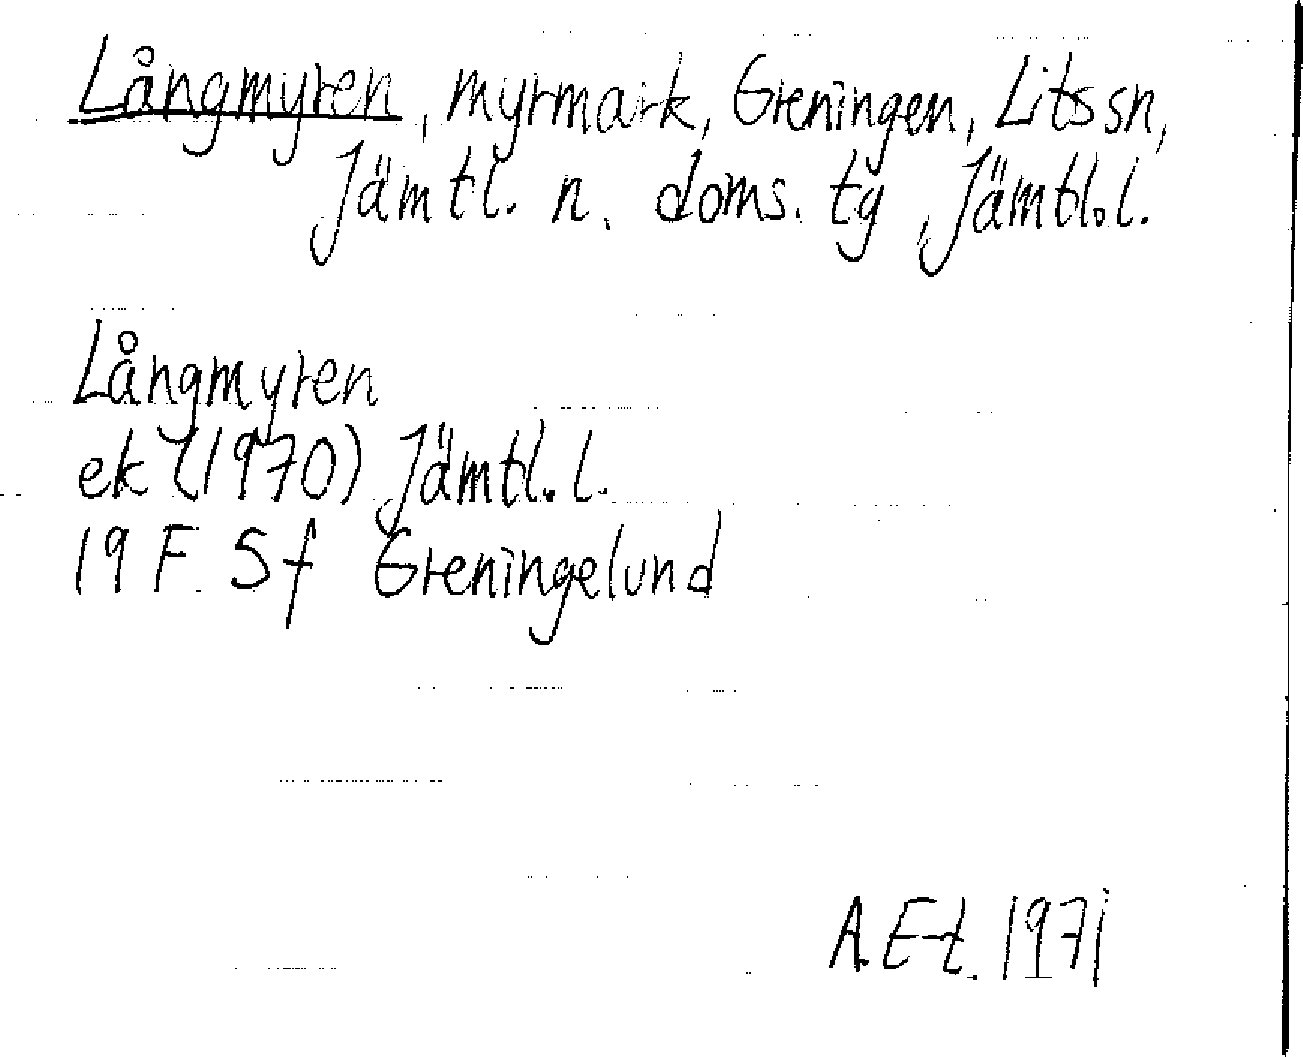 Långmyren, myrmark, Greningen, Lits sn,
Jämtl. n. doms. tg, Jämtl. l.
Långmyren
ek (1970) Jämtl. l.
19 F 5f Greningelund
A. E-t. 1971